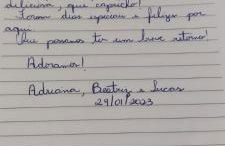 deliciosa, que capricho!
Foram dias especiais e felizes por
aqui.
Que possamos ter um breve retorno!
Adoramos!
Adriana, Beatriz e Lucas
29/01/2023